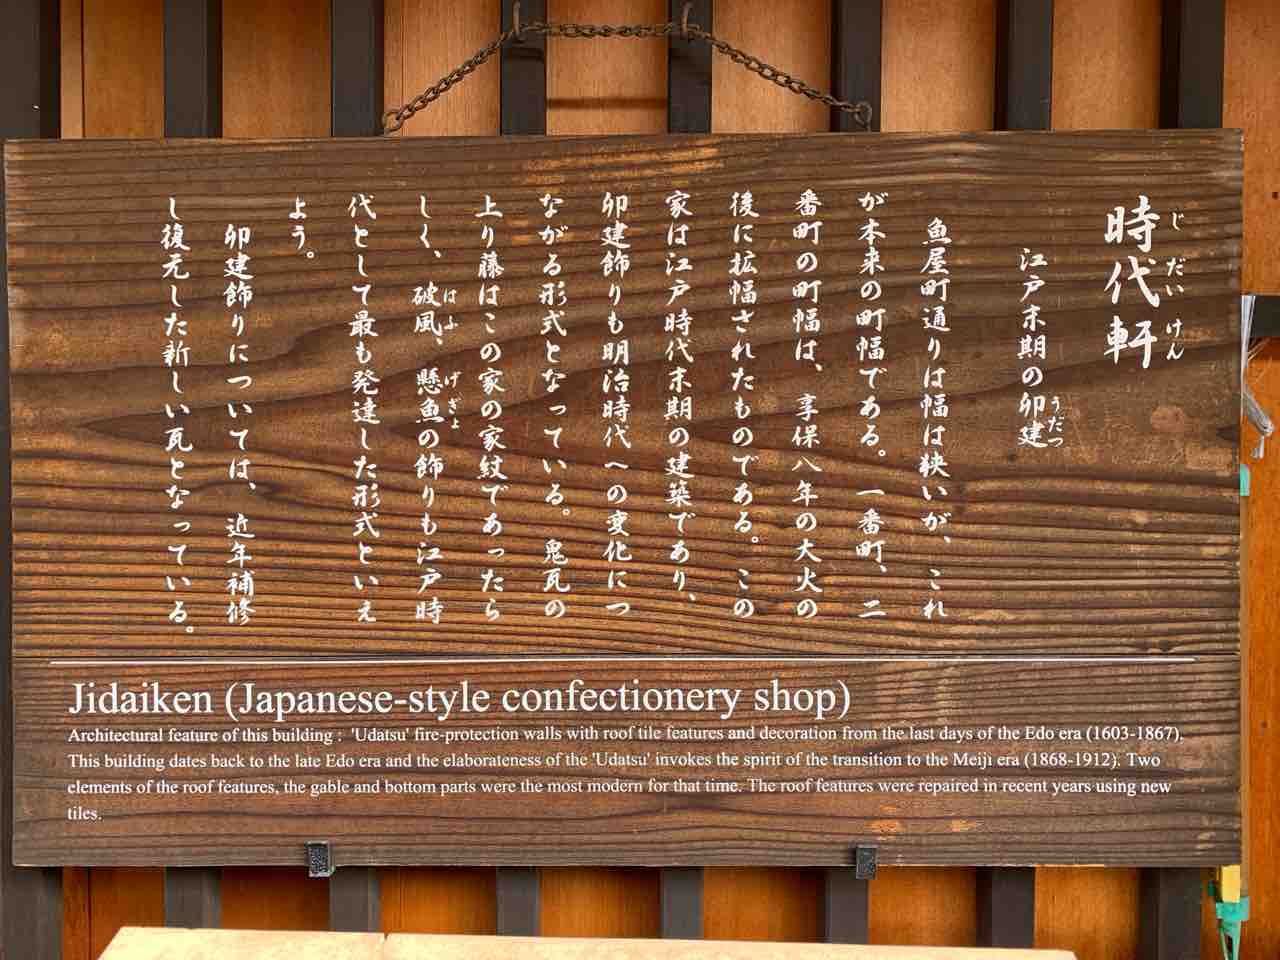 時代軒
じだいけん
江戸末期の卯建
うだつ
魚屋町通りは幅は狭いが、これ
が本来の町幅である。一番町、二
番町の町幅は、享保八年の大火の
後に拡幅されたものである。この
家は江戸時代末期の建築であり、
卯建飾りも明治時代への変化につ
ながる形式となっている。鬼瓦の
上り藤はこの家の家紋であったら
しく、破風、懸魚の飾りも江戸時
はふ げぎょ
代として最も発達した形式といえ
よう。
卯建飾りについては、近年補修
し復元した新しい瓦となっている。
Jidaiken (Japanese-style confectionery shop)
Architectural feature of this building : 'Udatsu' fire-protection walls with roof tile features and decoration from the last days of the Edo era (1603-1867).
This building dates back to the late Edo era and the elaborateness of the 'Udatsu' invokes the spirit of the transition to the Meiji era (1868-1912). Two
elements of the roof features, the gable and bottom parts were the most modern for that time. The roof features were repaired in recent years using new
tiles.